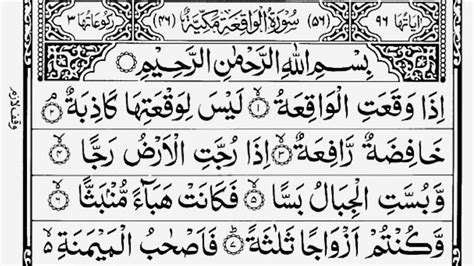 اٰیاتُہا ۹۶ (۵۶) سُوْرَۃُ الْوَاقِعَۃِ مَکِّیَّۃٌ (۴۶) رُکُوْعَاتُہا ۳
بِسْمِ اللّٰهِ الرَّحْمٰنِ الرَّحِيْمِ
اِذَا وَقَعَتِ الْوَاقِعَةُ ۙ‏﴿۱﴾ لَيْسَ لِوَقْعَتِهَا كَاذِبَةٌ ۘ‏﴿۲﴾
خَافِضَةٌ رَّافِعَةٌ ۙ‏﴿۳﴾ اِذَا رُجَّتِ الْاَرْضُ رَجًّا ۙ‏﴿۴﴾
وَّبُسَّتِ الْجِبَالُ بَسًّا ۙ‏﴿۵﴾ فَكَانَتْ هَبَآءً مُّنْۢبَثًّا ۙ‏﴿۶﴾
وَّكُنْتُمْ اَزْوَاجًا ثَلٰثَةً ؕ‏﴿۷﴾ فَاَصْحٰبُ الْمَيْمَنَةِ ۙ۬
وقف لازم